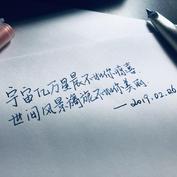 宇宙亿万星辰不如你惊喜
世间风景满流不如你美丽
—2019.02.06